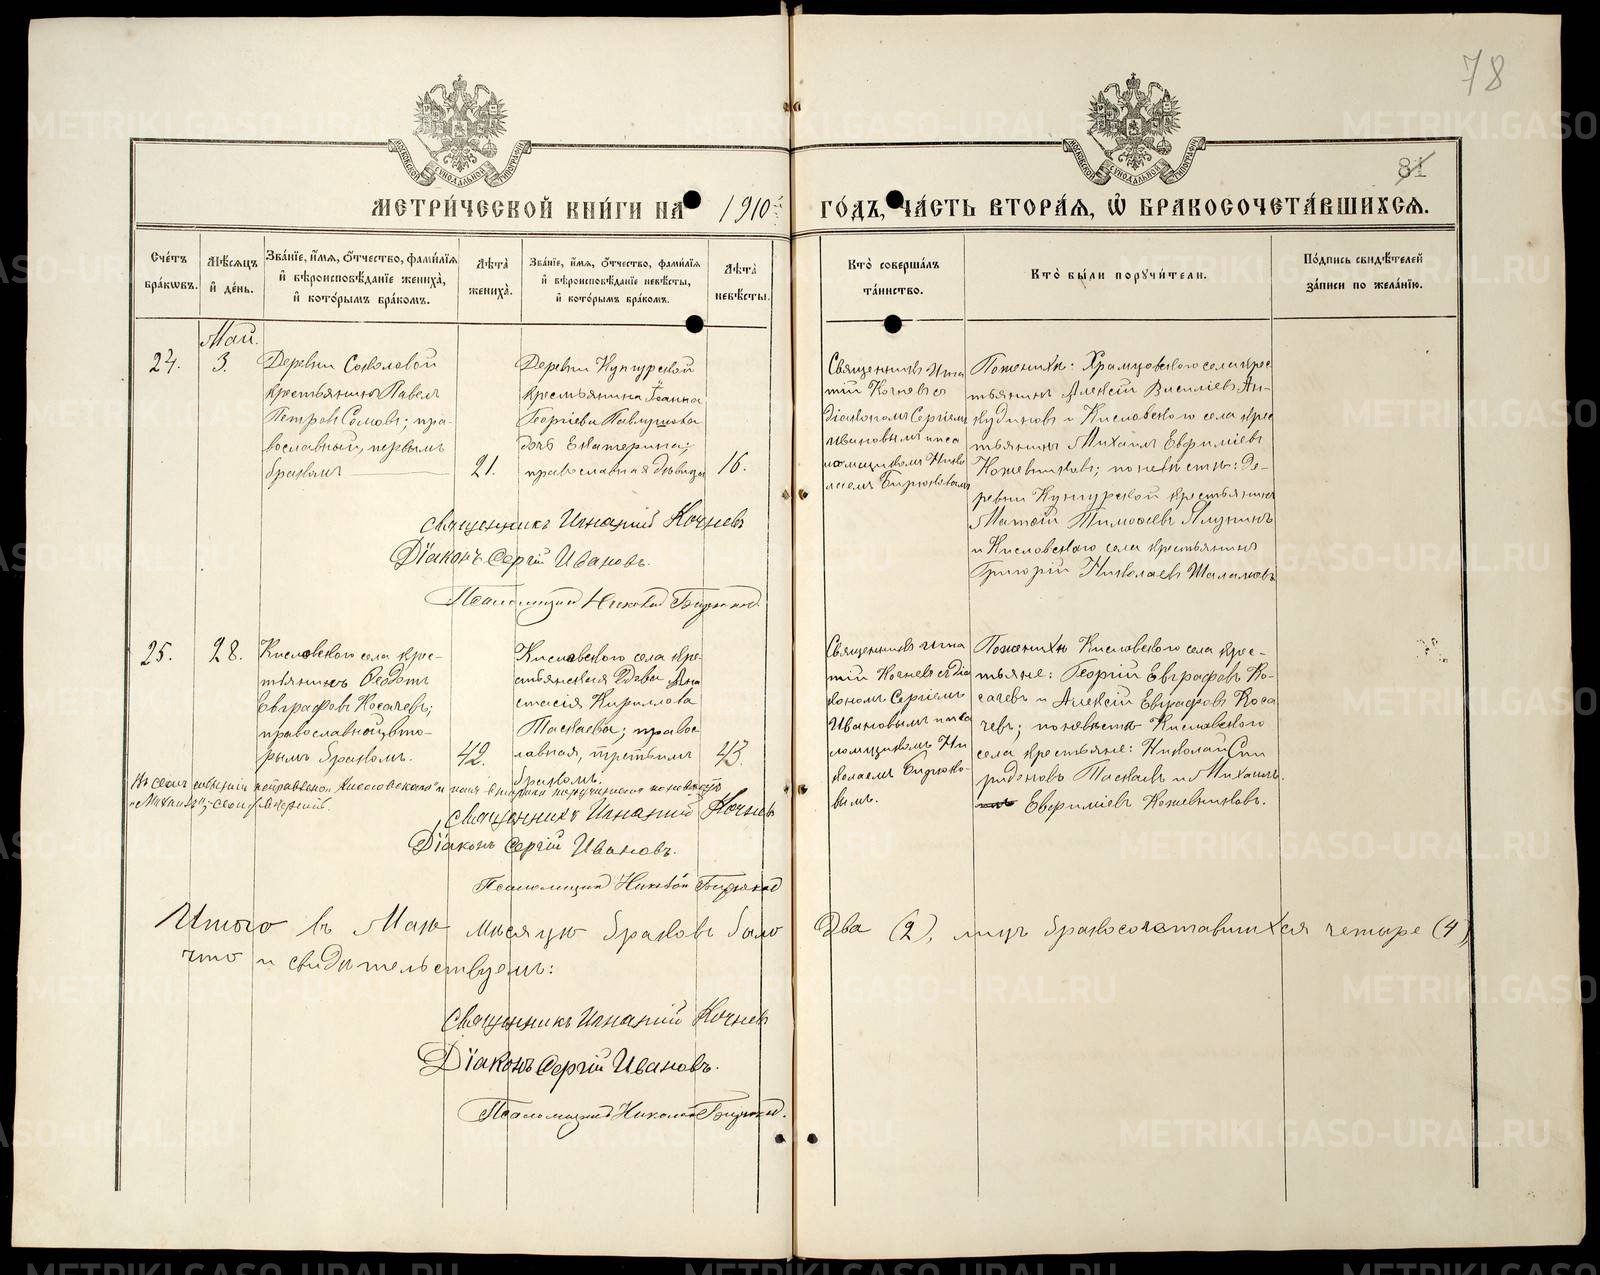 78
81
МОСКОВСКОЙ СѴНОДАЛЬНОЙ ТИПОГРАФІИ
МОСКОВСКОЙ СѴНОДАЛЬНОЙ ТИПОГРАФІИ
МЕТРИ́ЧЕСКОЙ КНИ́ГИ НА 1910 й
ГО́ДЪ, ЧА́СТЬ ВТОРА́Я, Ѡ҆ БРАКОСОЧЕТА́ВШИХСЯ.
Сче́тъ бра́кѡвъ.
Мѣ́сяцъ и҆ де́нь.
Зва́нїе, и҆́мя, ѻ҆́тчество, фами́лїя
и҆ вѣроисповѣ́данїе жениха̀,
и҆ кото́рымъ бра́комъ.
Лѣ́та̀ жениха̀.
Зва́нїе, и҆́мя, ѻ҆́тчество, фами́лїя
и҆ вѣроисповѣ́данїе невѣ́сты,
и҆ кото́рымъ бра́комъ.
Лѣ́та̀ невѣ́сты.
Кто̀ соверша́лъ
та́инство.
Кто̀ бы́ли порꙋчи́тели.
По́дпись свидѣ́телей
за́писи по жела́нїю.
Май.
24.
3.
Деревни Соколовой
крестьянинъ Павелъ
Петровъ Сомовъ; пра-
вославный, первымъ
бракомъ
21.
Деревни Кунгурской
крестьянина Іоанна
Георгіева
дочь Екатерина;
православная дѣвица
16.
Священникъ Игна
тій Кочневъ съ
діакономъ Сергіемъ
Ивановымъ и пса
ломщикомъ Нико
лаемъ Бирюковымъ
По женихѣ: Храмцовскаго села крес
тьянинъ Алексій Василіевъ Ан-
кудиновъ и Кисловскаго села крес
тьянинъ Михаилъ Евфиміевъ
Кожевниковъ; по невѣстѣ: де-
ревни Кунгурской крестьянинъ
Матѳій Тимоѳеевъ Ялунинъ
и Кисловскаго села крестьянинъ
Григорій Николаевъ Шаламовъ
Священникъ Игнатій Кочневъ
Діаконъ Сергій Ивановъ.
Псаломщикъ Николай Бирюковъ
25.
28.
Кисловскаго села крес-
тьянинъ Ѳеодотъ
Евграфовъ Косачевъ;
православный, вто-
рымъ бракомъ.
42.
Кисловскаго села кре-
стьянская вдова Ана
стасія Кириллова
Таскаева; правос-
лавная, третьимъ
бракомъ.
43.
Священникъ Игна
тій Кочневъ съ діа
кономъ Сергіемъ
Ивановымъ и пса
ломщикомъ Ни
колаемъ Бирюко-
вымъ.
По женихѣ Кисловскаго села крес-
тьяне: Георгій Евграфовъ Ко-
сачевъ и Алексій Евграфовъ Коса
чевъ; по невѣстѣ Кисловскаго
села крестьяне: Николай Спи
ридоновъ Таскаевъ и Михаилъ
Евфиміевъ Кожевниковъ.
Священникъ Игнатій Кочневъ
Діаконъ Сергій Ивановъ.
Псаломщикъ Николай Бирюковъ
Итого въ Маѣ мѣсяцѣ браковъ было два (2), лицъ бракосочетавшихся четыре (4),
что и свидѣтельствуемъ:
Священникъ Игнатій Кочневъ
Діаконъ Сергій Ивановъ.
Псаломщикъ Николай Бирюковъ.
METRIKI.GASO-URAL.RU